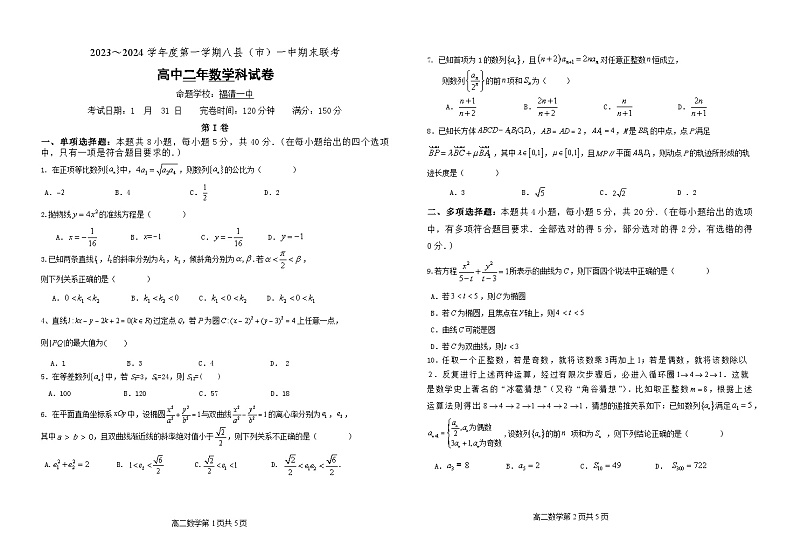 2023～2024学年度第一学期八县（市）一中期末联考
高中二年数学科试卷
命题学校：福清一中
考试日期：1 月 31 日 完卷时间：120分钟 满分：150分
第 I 卷
一、单项选择题：本题共8小题，每小题5分，共40分.（在每小题给出的四个选项
中，只有一项是符合题目要求的.）
1. 在正项等比数列{aₙ}中，4a₁=√(a₂a₄)，则数列{aₙ}的公比为（ ）
A. -2 B. 4 C. 1/2 D. 2
2.抛物线y=4x²的准线方程是（ ）
A. x=-1/16 B. x=-1 C. y=-1/16 D. y=-1
3.已知两条直线l₁，l₂的斜率分别为k₁，k₂，倾斜角分别为α，β.若α<π/2<β，
则下列关系正确的是（ ）
A. 0<k₁<k₂ B. k₁<k₂<0 C. k₁<0<k₂ D. k₂<0<k₁
4、直线l:kx-y-2k+2=0(k∈R)过定点Q，若P为圆C:(x-2)²+(y-3)²=4上任意一点，
则|PQ|的最大值为（ ）
A. 1 B. 3 C. 4 D. 2
5. 在等差数列{aₙ}中，若S₅=3，S₆=24，则 =（ ）
A. 100 B. 120 C. 57 D. 18
6. 在平面直角坐标系xOy中，设椭圆x²/a²+y²/b²=1与双曲线x²/a²-y²/b²=1的离心率分别为e₁，e₂，
其中a>b>0，且双曲线渐近线的斜率绝对值小于√2/2，则下列关系不正确的是（ ）
A. e₁²+e₂²=2 B. 1<e₂<√6/2 C. √2/2<e₁<1 D. √2/2<e₁e₂<√6/2.
高二数学第 1页共 5页
7. 已知首项为1的数列{aₙ}，且(n+2)aₙ₊₁=2naₙ对任意正整数n恒成立，
则数列{aₙ/2ⁿ}的前n项和Sₙ为（ ）
A. (n+1)/(n+2) B. (2n+1)/(n+2) C. n/(n+1) D. 2n/(n+1)
8. 已知长方体ABCD-A₁B₁C₁D₁，AB=AD=2，AA₁=4，M是BB₁的中点，点P满足
BP=λBC+μBA₁，其中λ∈[0,1]，μ∈[0,1]，且MP∥平面AB₁D₁，则动点P的轨迹所形成的轨
迹长度是（ ）
A. 3 B. √5 C. 2√2 D .2
二、多项选择题：本题共4小题，每小题5分，共20分.（在每小题给出的选项
中，有多项符合题目要求. 全部选对的得5分，部分选对的得2分，有选错的得
0分.）
9.若方程x²/(5-t)+y²/(t-3)=1所表示的曲线为C，则下面四个说法中正确的是（ ）
A. 若3<t<5，则C为椭圆
B. 若C为椭圆，且焦点在y轴上，则4<t<5
C. 曲线C可能是圆
D. 若C为双曲线，则t<3
10. 任取一个正整数，若是奇数，就将该数乘3再加上1；若是偶数，就将该数除以
2. 反复进行上述两种运算，经过有限次步骤后，必进入循环圈1→4→2→1. 这就
是数学史上著名的“冰雹猜想”（又称“角谷猜想”）. 比如取正整数m=8，根据上述
运算法则得出8→4→2→1→4→2→1. 猜想的递推关系如下：已知数列{aₙ}满足a₁=5，
aₙ₊₁={aₙ/2,aₙ为偶数 3aₙ+1,aₙ为奇数，设数列{aₙ}的前n 项和为Sₙ，则下列结论正确的是（ ）
A. a₃=8 B. a₅=2 C. S₁₀=49 D. S₃₀₀=722
高二数学第 2页共 5页